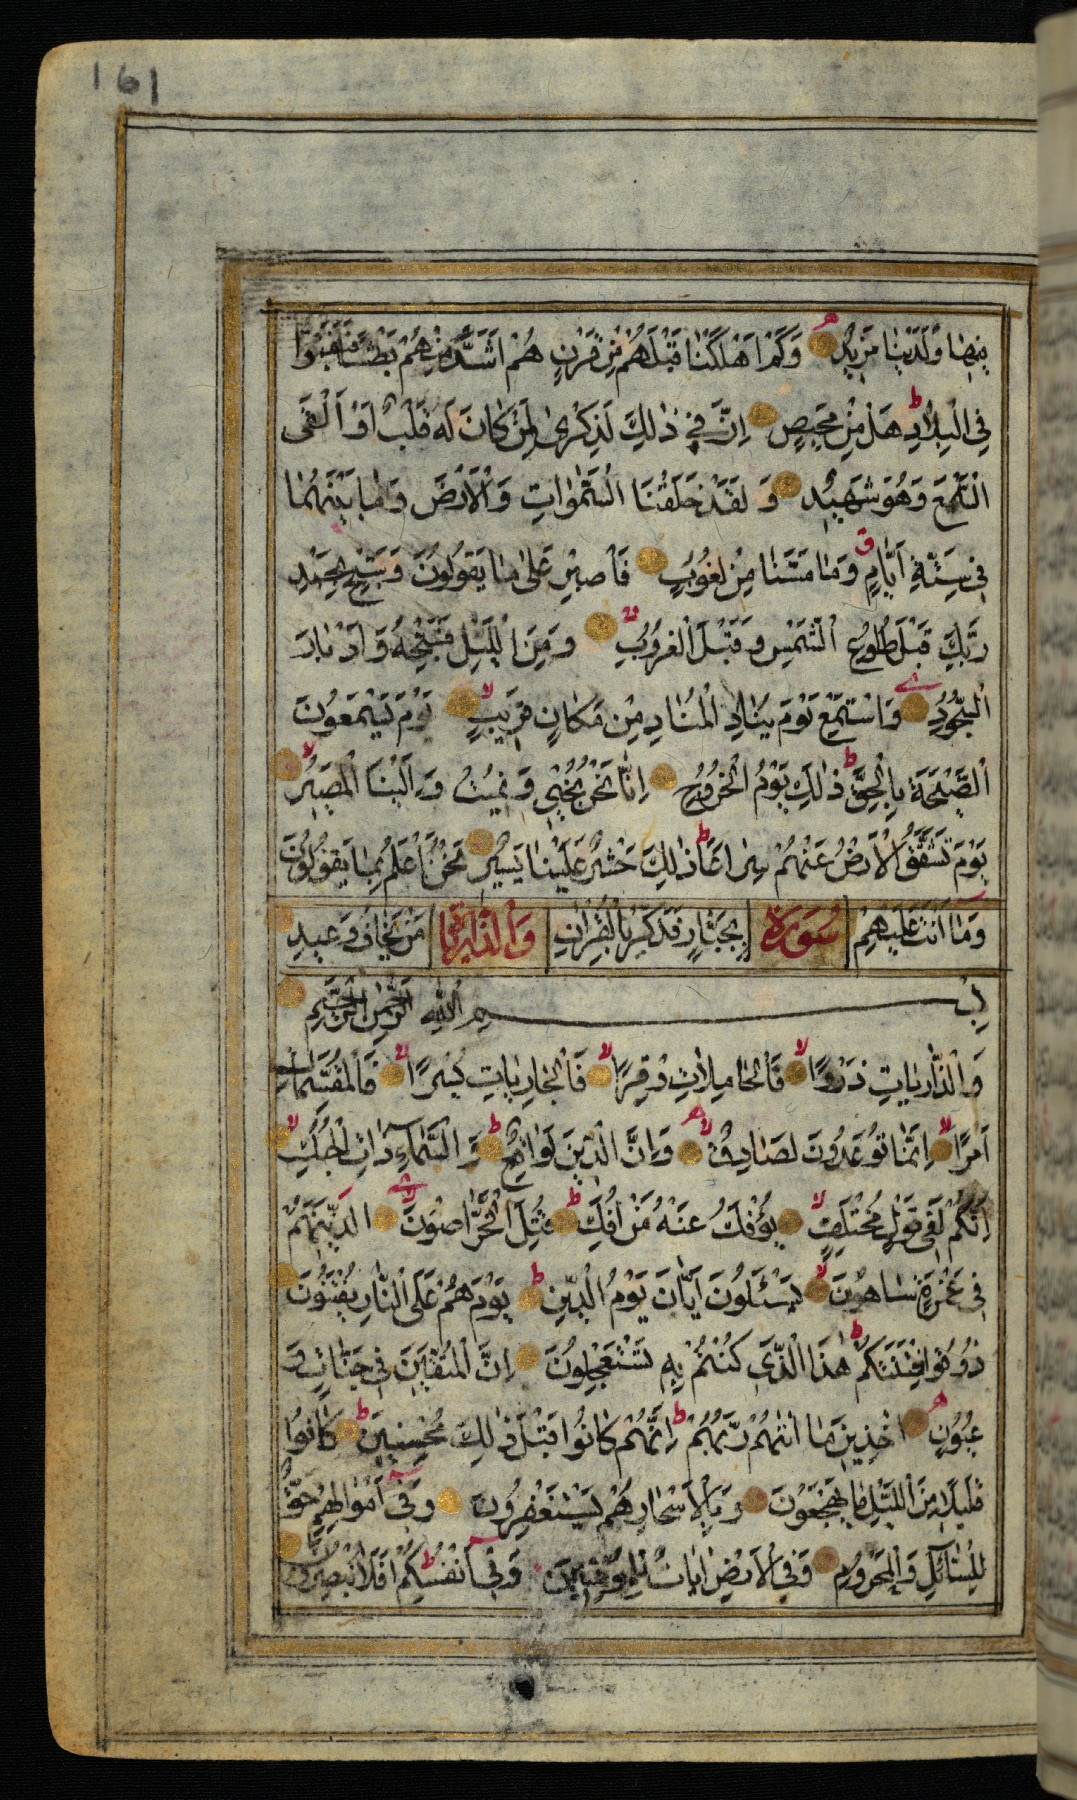 161
فِيهَا وَلَدَيْنَا مَزِيدٌ وَكَمْ اَهْلَكْنَا قَبْلَهُمْ مِنْ قَرْنٍ هُمْ اَشَدُّ مِنْهُمْ بَطْشًا فَنَقَّبُوا
فِي الْبِلَادِ هَلْ مِنْ مَحِيصٍ اِنَّ فِي ذٰلِكَ لَذِكْرٰى لِمَنْ كَانَ لَهُ قَلْبٌ اَوْ اَلْقَى
السَّمْعَ وَهُوَ شَهِيدٌ وَ لَقَدْ خَلَقْنَا السَّمٰوَاتِ وَالْاَرْضَ وَمَا بَيْنَهُمَا
فِي سِتَّةِ اَيَّامٍ وَمَا مَسَّنَا مِنْ لُغُوبٍ فَاصْبِرْ عَلٰى مَا يَقُولُونَ وَسَبِّحْ بِحَمْدِ
رَبِّكَ قَبْلَ طُلُوعِ الشَّمْسِ وَقَبْلَ الْغُرُوبِ وَمِنَ اللَّيْلِ فَسَبِّحْهُ وَاَدْبَارَ
السُّجُودِ وَاسْتَمِعْ يَوْمَ يُنَادِ الْمُنَادِ مِنْ مَكَانٍ قَرِيبٍ يَوْمَ يَسْمَعُونَ
الصَّيْحَةَ بِالْحَقِّ ذٰلِكَ يَوْمُ الْخُرُوجِ اِنَّا نَحْنُ نُحْيِي وَنُمِيتُ وَاِلَيْنَا الْمَصِيرُ
يَوْمَ تَشَقَّقُ الْاَرْضُ عَنْهُمْ سِرَاعًا ذٰلِكَ حَشْرٌ عَلَيْنَا يَسِيرٌ نَحْنُ اَعْلَمُ بِمَا يَقُولُونَ
وَمَا اَنْتَ عَلَيْهِمْ سُورَة بِجَبَّارٍ فَذَكِّرْ بِالْقُرْاٰنِ وَالذَّارِيَات مَنْ يَخَافُ وَعِيدِ
بِسْمِ اللهِ الرَّحْمٰنِ الرَّحِيمِ
وَالذَّارِيَاتِ ذَرْوًا فَالْحَامِلَاتِ وِقْرًا فَالْجَارِيَاتِ يُسْرًا فَالْمُقَسِّمَاتِ
اَمْرًا اِنَّمَا تُوعَدُونَ لَصَادِقٌ وَاِنَّ الدِّينَ لَوَاقِعٌ وَالسَّمَاءِ ذَاتِ الْحُبُكِ
اِنَّكُمْ لَفِي قَوْلٍ مُخْتَلِفٍ يُؤْفَكُ عَنْهُ مَنْ اُفِكَ قُتِلَ الْخَرَّاصُونَ الَّذِينَ هُمْ
فِي غَمْرَةٍ سَاهُونَ يَسْئَلُونَ اَيَّانَ يَوْمُ الدِّينِ يَوْمَ هُمْ عَلَى النَّارِ يُفْتَنُونَ
ذُوقُوا فِتْنَتَكُمْ هٰذَا الَّذِي كُنْتُمْ بِهِ تَسْتَعْجِلُونَ اِنَّ الْمُتَّقِينَ فِي جَنَّاتٍ وَ
عُيُونٍ اٰخِذِينَ مَا اٰتٰيهُمْ رَبُّهُمْ اِنَّهُمْ كَانُوا قَبْلَ ذٰلِكَ مُحْسِنِينَ كَانُوا
قَلِيلًا مِنَ اللَّيْلِ مَا يَهْجَعُونَ وَبِالْاَسْحَارِ هُمْ يَسْتَغْفِرُونَ وَفِي اَمْوَالِهِمْ حَقٌّ
لِلسَّائِلِ وَالْمَحْرُومِ وَفِي الْاَرْضِ اٰيَاتٌ لِلْمُوقِنِينَ وَفِي اَنْفُسِكُمْ اَفَلَا تُبْصِرُونَ